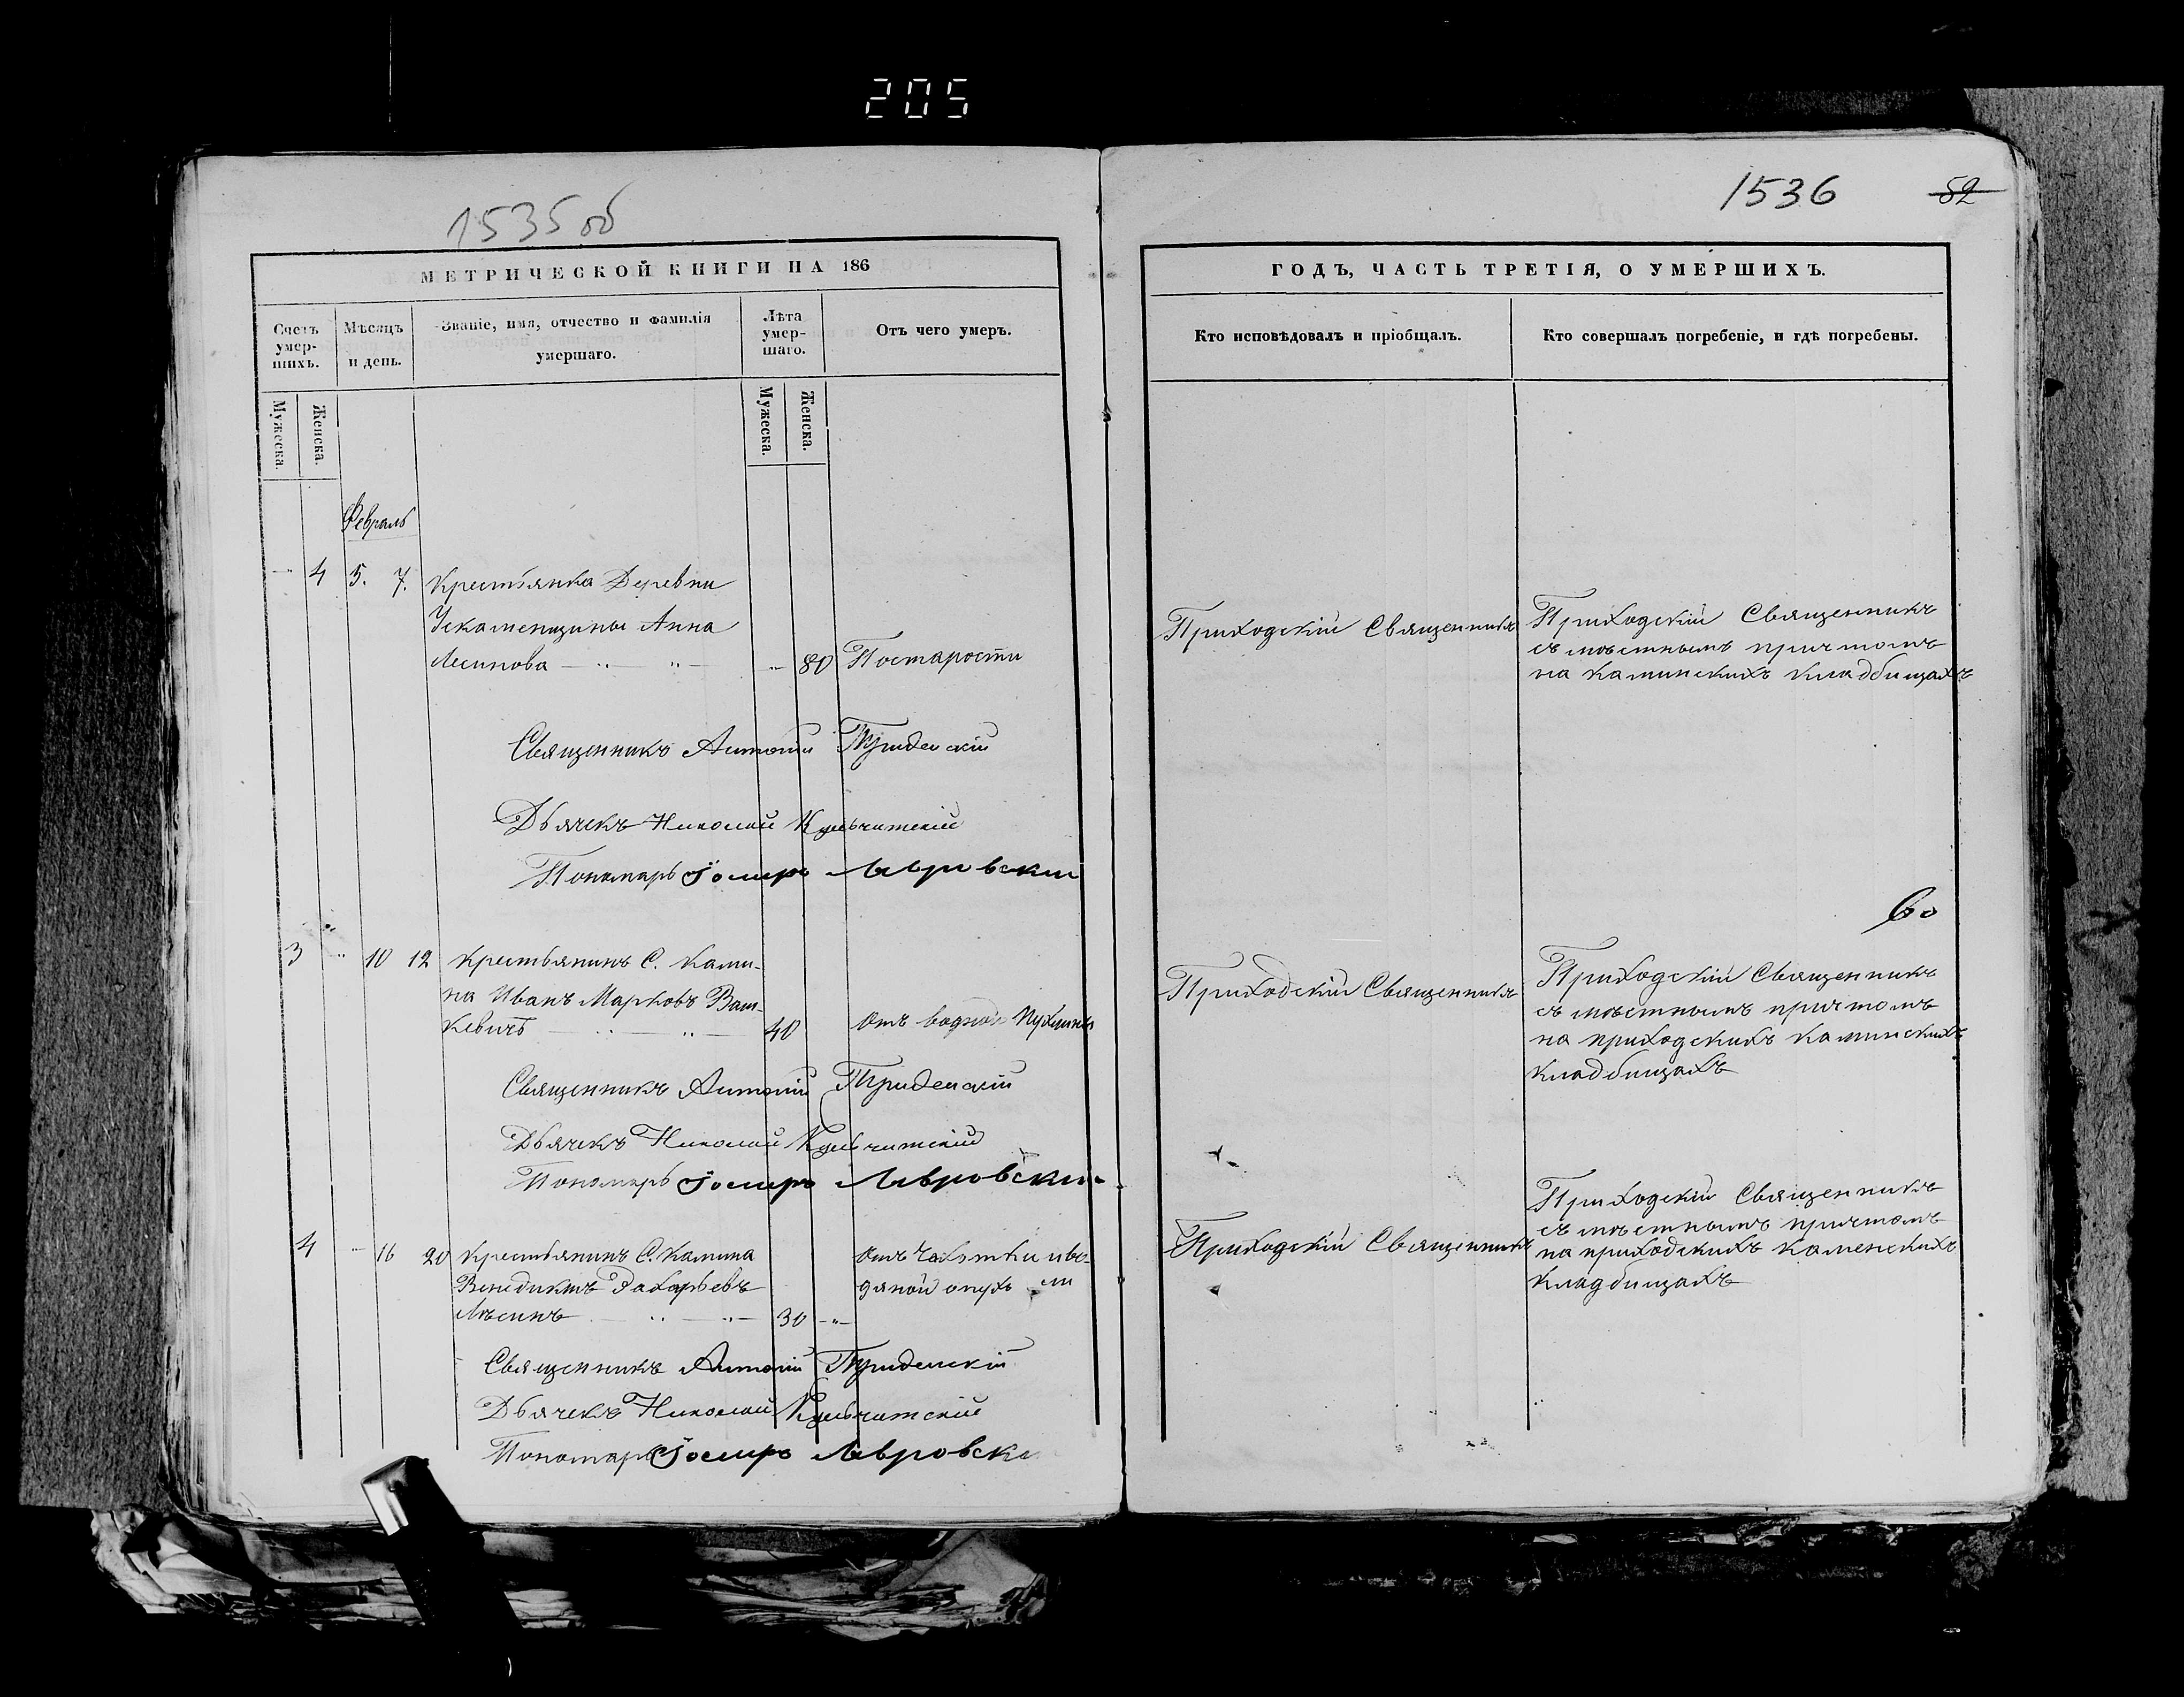 205
1535об
МЕТРИЧЕСКОЙ КНИГИ НА 186
Счетъ умер-шихъ.
Мѣсяцъ и день.
Званіе, имя, отчество и фамилія умершаго.
Лѣта умер-шаго.
Отъ чего умеръ.
Мужеска.
Женска.
Мужеска.
Женска.
Февраль
4 5. 7. Крестьянка Деревни
Ускаменщины Анна
Лесинова 80 Постарости
Священникъ Антоній
Дьячекъ Николай
Пономарь Іосифъ Лавровскій
3 10 12 Крестьянинъ С. Ками-
на Иванъ Марковъ Ваш-
кевичъ 40 Отъ водной пухлины
Священникъ Антоній
Дьячекъ Николай
Пономарь Іосифъ Лавровскій
4 16 20 Крестьянинъ С. Камина
Венедиктъ Захарьевъ
Лѣсинъ 30
Отъ Чахотки иво-
дяной опухоли
Священникъ Антоній
Дьячекъ Николай
Пономарь Іосифъ Лавровск
1536 52
ГОДЪ, ЧАСТЬ ТРЕТІЯ, О УМЕРШИХЪ.
Кто исповѣдовалъ и пріобщалъ.
Кто совершалъ погребеніе, и гдѣ погребены.
Приходскій Священникъ
Приходскій Священникъ
съ мѣстнымъ причтомъ
на Каминскихъ кладбищахъ
60
Приходскій Священникъ
Приходскій Священникъ
съ мѣстнымъ причтомъ
на приходскихъ Каминскихъ
кладбищахъ
Приходскій Священникъ
Приходскій Священникъ
съ мѣстнымъ причтомъ
на приходскихъ Каменскихъ
кладбищахъ